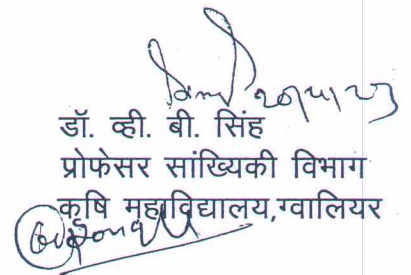 डॉ. व्ही. बी. सिंह
प्रोफेसर सांख्यिकी विभाग
कृषि महाविद्यालय,ग्वालियर